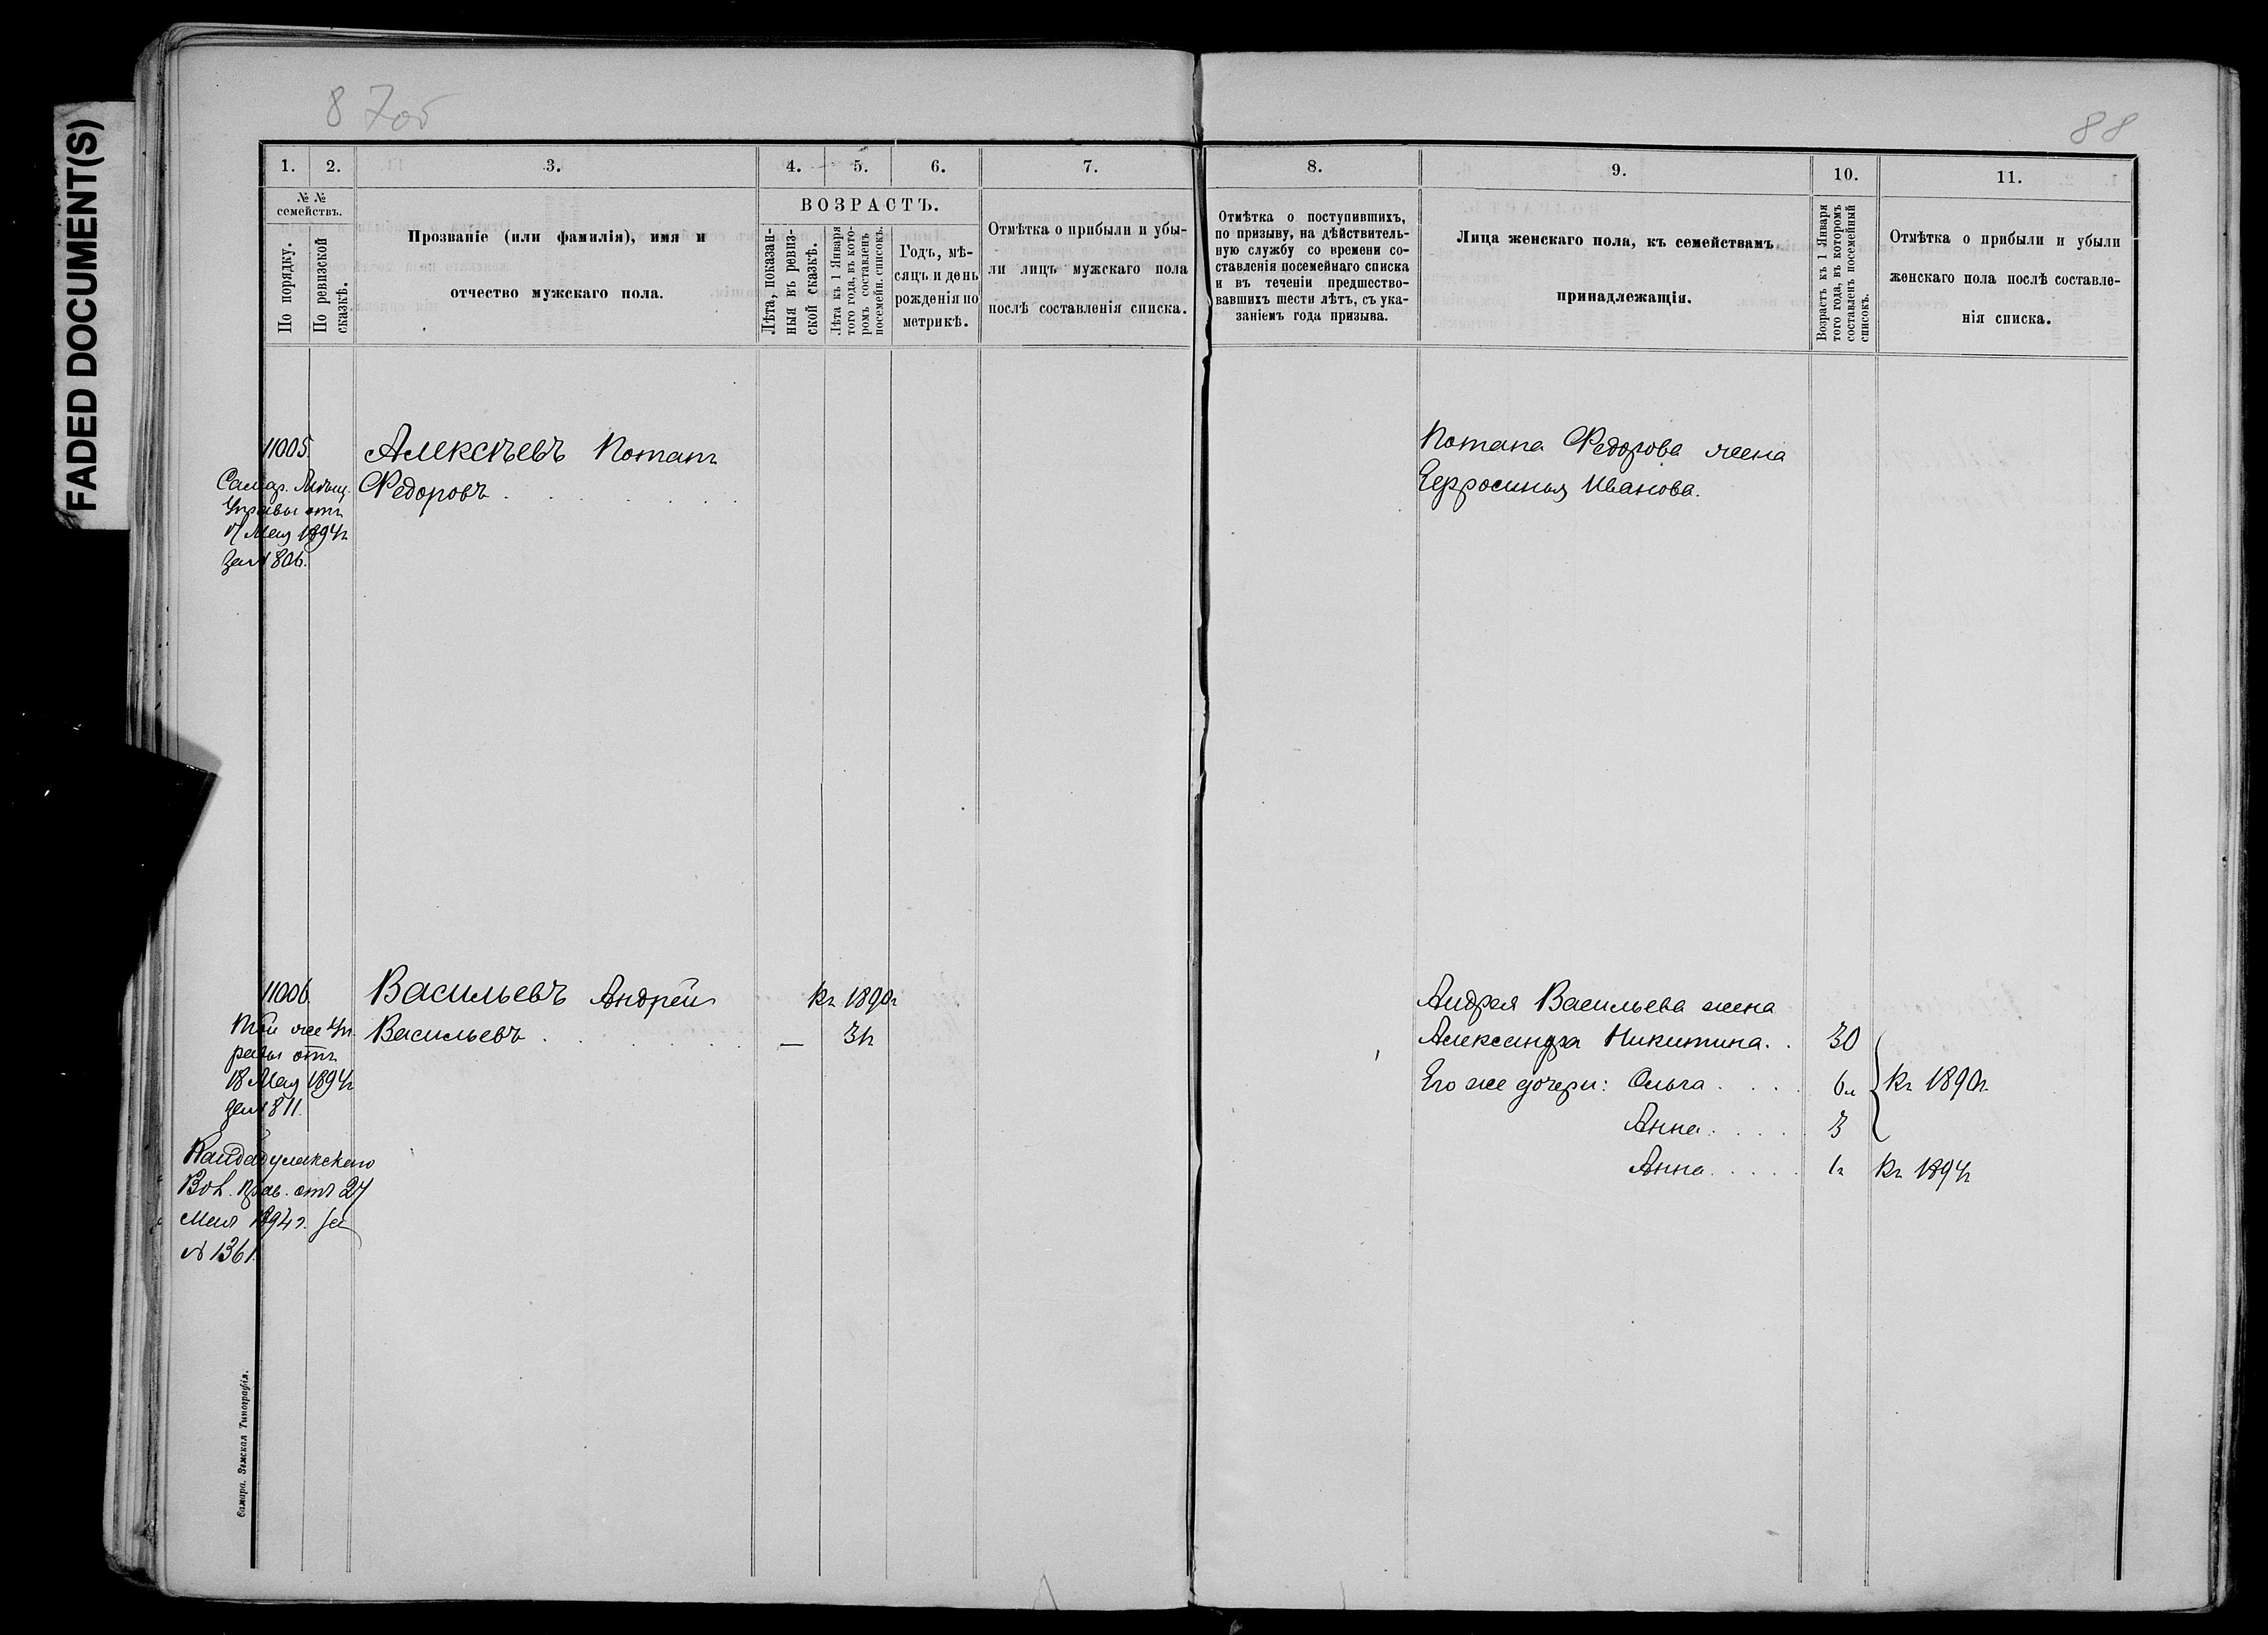 FADED DOCUMENT(S)
87об
88
1. 2. 3. 4. 5. 6. 7.
№ №
семействъ.
По порядку.
По ревизской
сказкѣ.
Прозваніе (или фамилія), имя и
отчество мужскаго пола.
ВОЗРАСТЪ.
Лѣта, показан-
ныя въ ревиз-
ской сказкѣ.
Лѣта къ 1 Января
того года, въ кото-
ромъ составленъ
посемейн. списокъ.
Годъ, мѣ-
сяцъ и день
рожденія по
метрикѣ.
Отмѣтка о прибыли и убы-
ли лицъ мужскаго пола
послѣ составленія списка.
11005.
Самар. Мѣщ.
Управы отъ
Мая 1894г
за № 806.
Алексѣевъ Потапъ
Федоровъ
11006
Той же Уп-
равы отъ
18 Мая 1894г
за № 811.
Вол. Прав. отъ 27
Мая 1894 г. за
№ 1361.
Васильевъ Андрей
Васильевъ
Къ 1890г
— 31г
Самара. Земская Типографія.
8. 9. 10. 11.
Отмѣтка о поступившихъ,
по призыву, на дѣйствитель-
ную службу со времени со-
ставленія посемейнаго списка
и въ теченіи предшество-
вавшихъ шести лѣтъ, съ ука-
заніемъ года призыва.
Лица женскаго пола, къ семействамъ
принадлежащія.
Возрастъ къ 1 Января
того года, въ которомъ
составленъ посемейный
списокъ.
Отмѣтка о прибыли и убыли
женскаго пола послѣ составле-
нія списка.
Потапа Федорова жена
Ефросинья Иванова.
Андрея Васильева жена
Александра Никитина. . 30
Его же дочери: Ольга . . . . 6л Къ 1890г
Анна . . . . . 3
Анна . . . . . 1г Къ 1894г